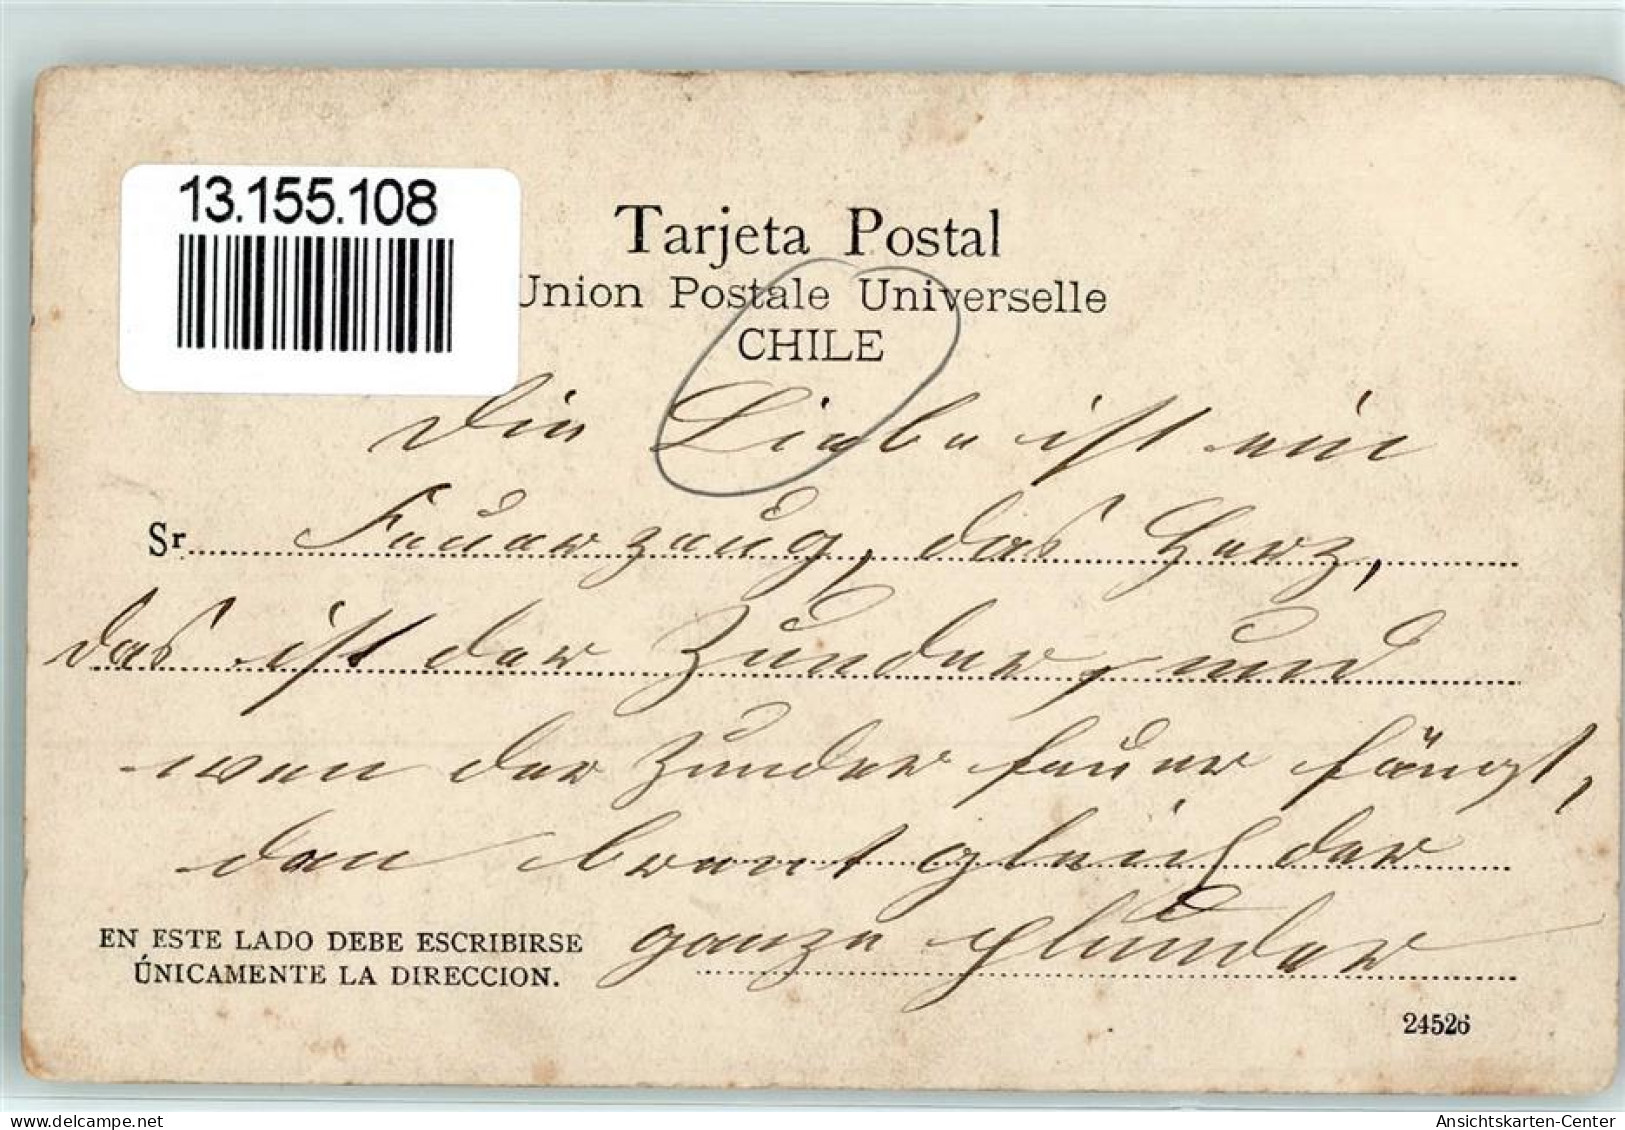 13.155.108
Tarjeta Postal
Union Postale Universelle
CHILE
Die Liebe ist ein
Sr. Feuerzeug, das Herz,
das ist der Zunder, und
wen der Zunder feuer fängt,
dan brant gleich der
ganze plunder
EN ESTE LADO DEBE ESCRIBIRSE
ÚNICAMENTE LA DIRECCION.
24526
Ansichtskarten-Center